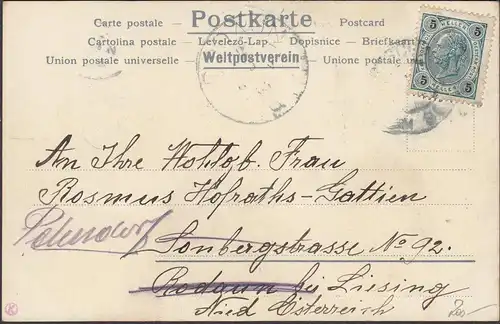 Carte postale — Postkarte — Postcard
Cartolina postale — Levelező-Lap — Dopisnice — Briefkaart
Union postale universelle — Weltpostverein — Unione postale
5 HELLER 5
5 HELLER 5
An Ihre Wohlgb. Frau
Rosmus Hofraths-Gattien
Sonbergstrasse No 92.
Rodaun bei Liesing
Nied Österreich
K